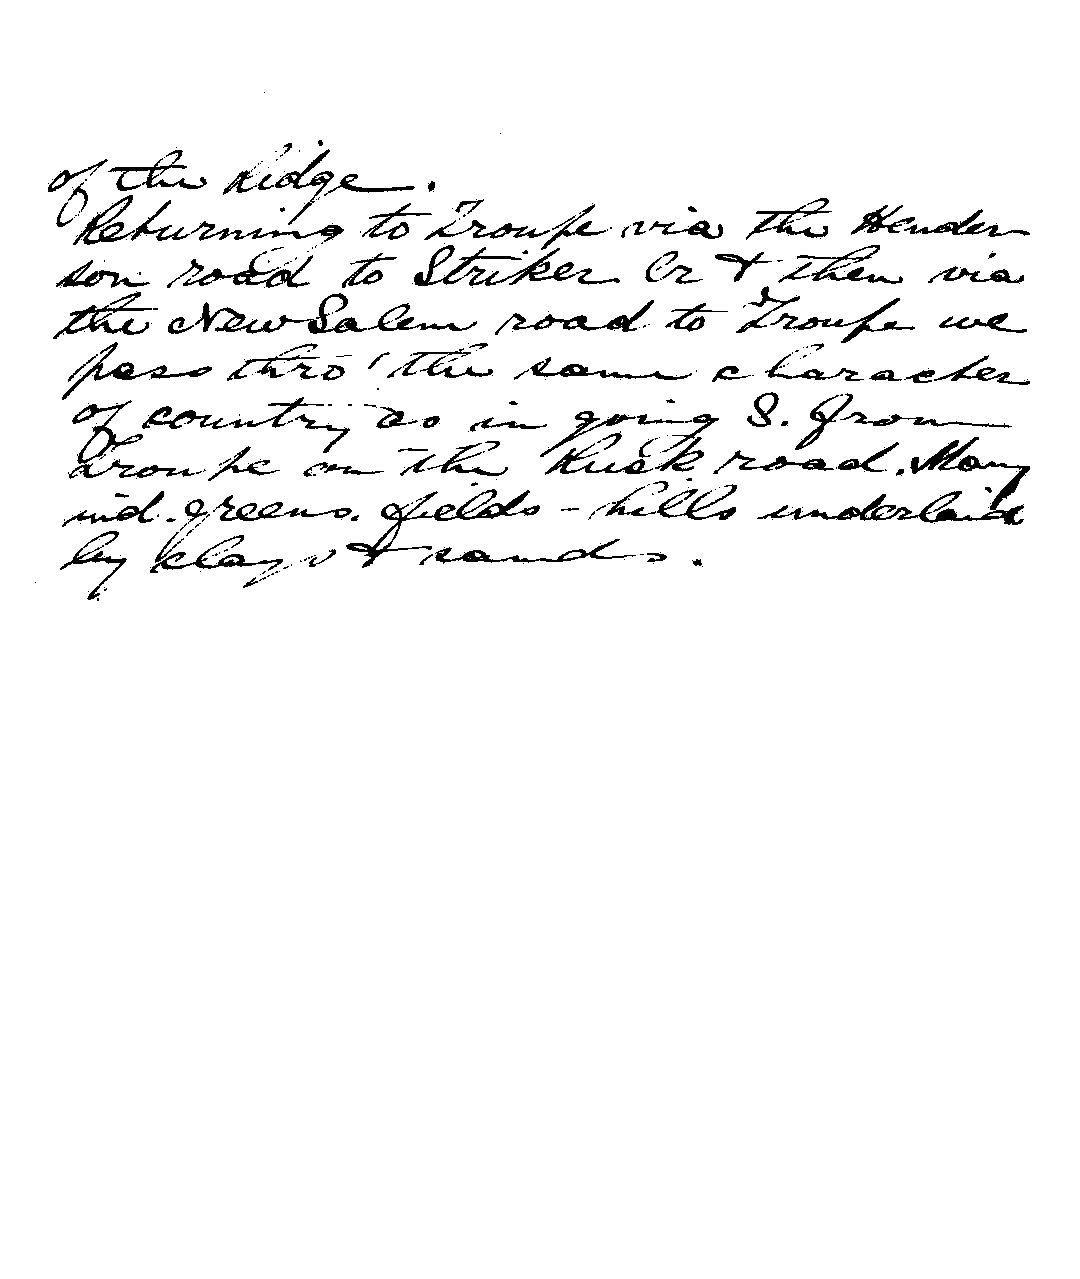 of the Ridge.
Returning to Troupe via the Hender-
son road to Striker Cr & then via
the New Salem road to Troupe we
pass thro' the same character
of country as in going S. from
Troupe on the Rusk road. Many
ind. greens. fields - hills underlaid
by clays & sands.